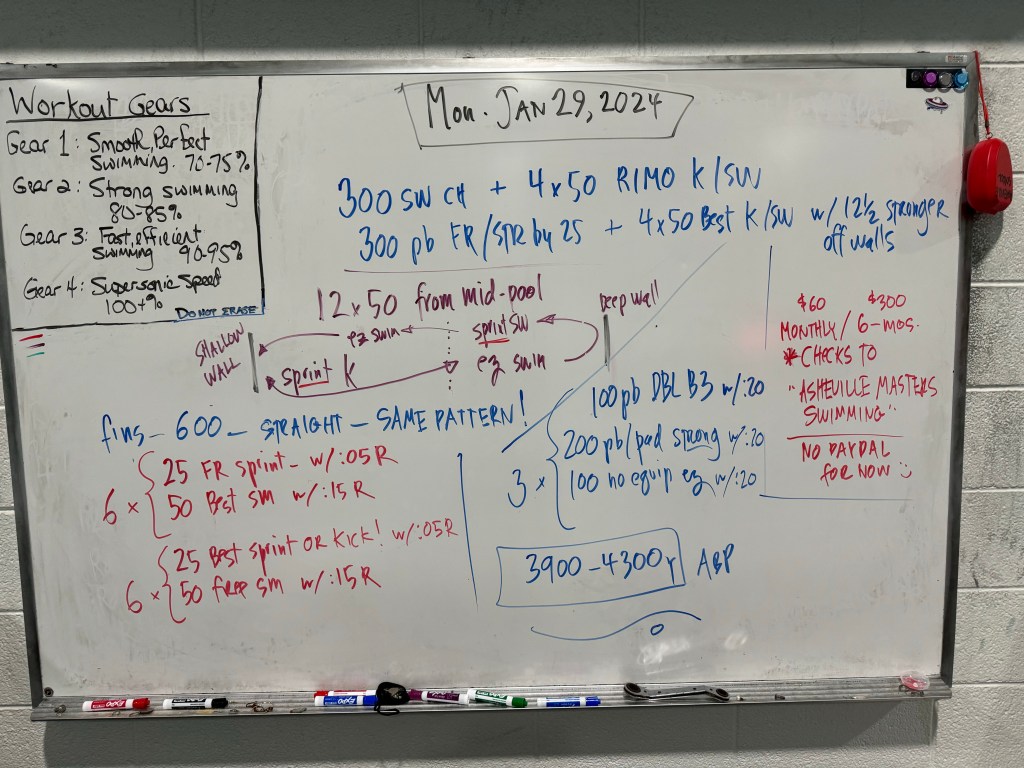 Workout Gears
Gear 1: Smooth, Perfect
swimming. 70-75%
Gear 2: Strong swimming
80-85%
Gear 3: Fast, efficient
swimming 90-95%
Gear 4: Supersonic Speed
100+%
DO NOT ERASE
Mon. JAN 29, 2024
300 SW CH + 4x50 RIMO K/SW
300 pb FR/STR by 25 + 4x50 Best K/SW w/ 12½ stronger
off walls
12x50 from mid-pool
SHALLOW
WALL
ez swim
sprint SW
Deep wall
sprint K
ez swim
fins - 600 - STRAIGHT - SAME PATTERN!
6 x
25 FR sprint - w/:05R
50 Best sm w/:15R
6 x
25 Best sprint OR Kick! w/:05R
50 free sm w/:15R
3 x
100 pb DBL B3 w/:20
200 pb/pad strong w/:20
100 no equip ez w/:20
3900-4300y ABP
$60 $300
MONTHLY/ 6-mos.
*CHECKS TO
"ASHEVILLE MASTERS
SWIMMING"
NO PAYPAL
FOR NOW
EXPO
EXPO